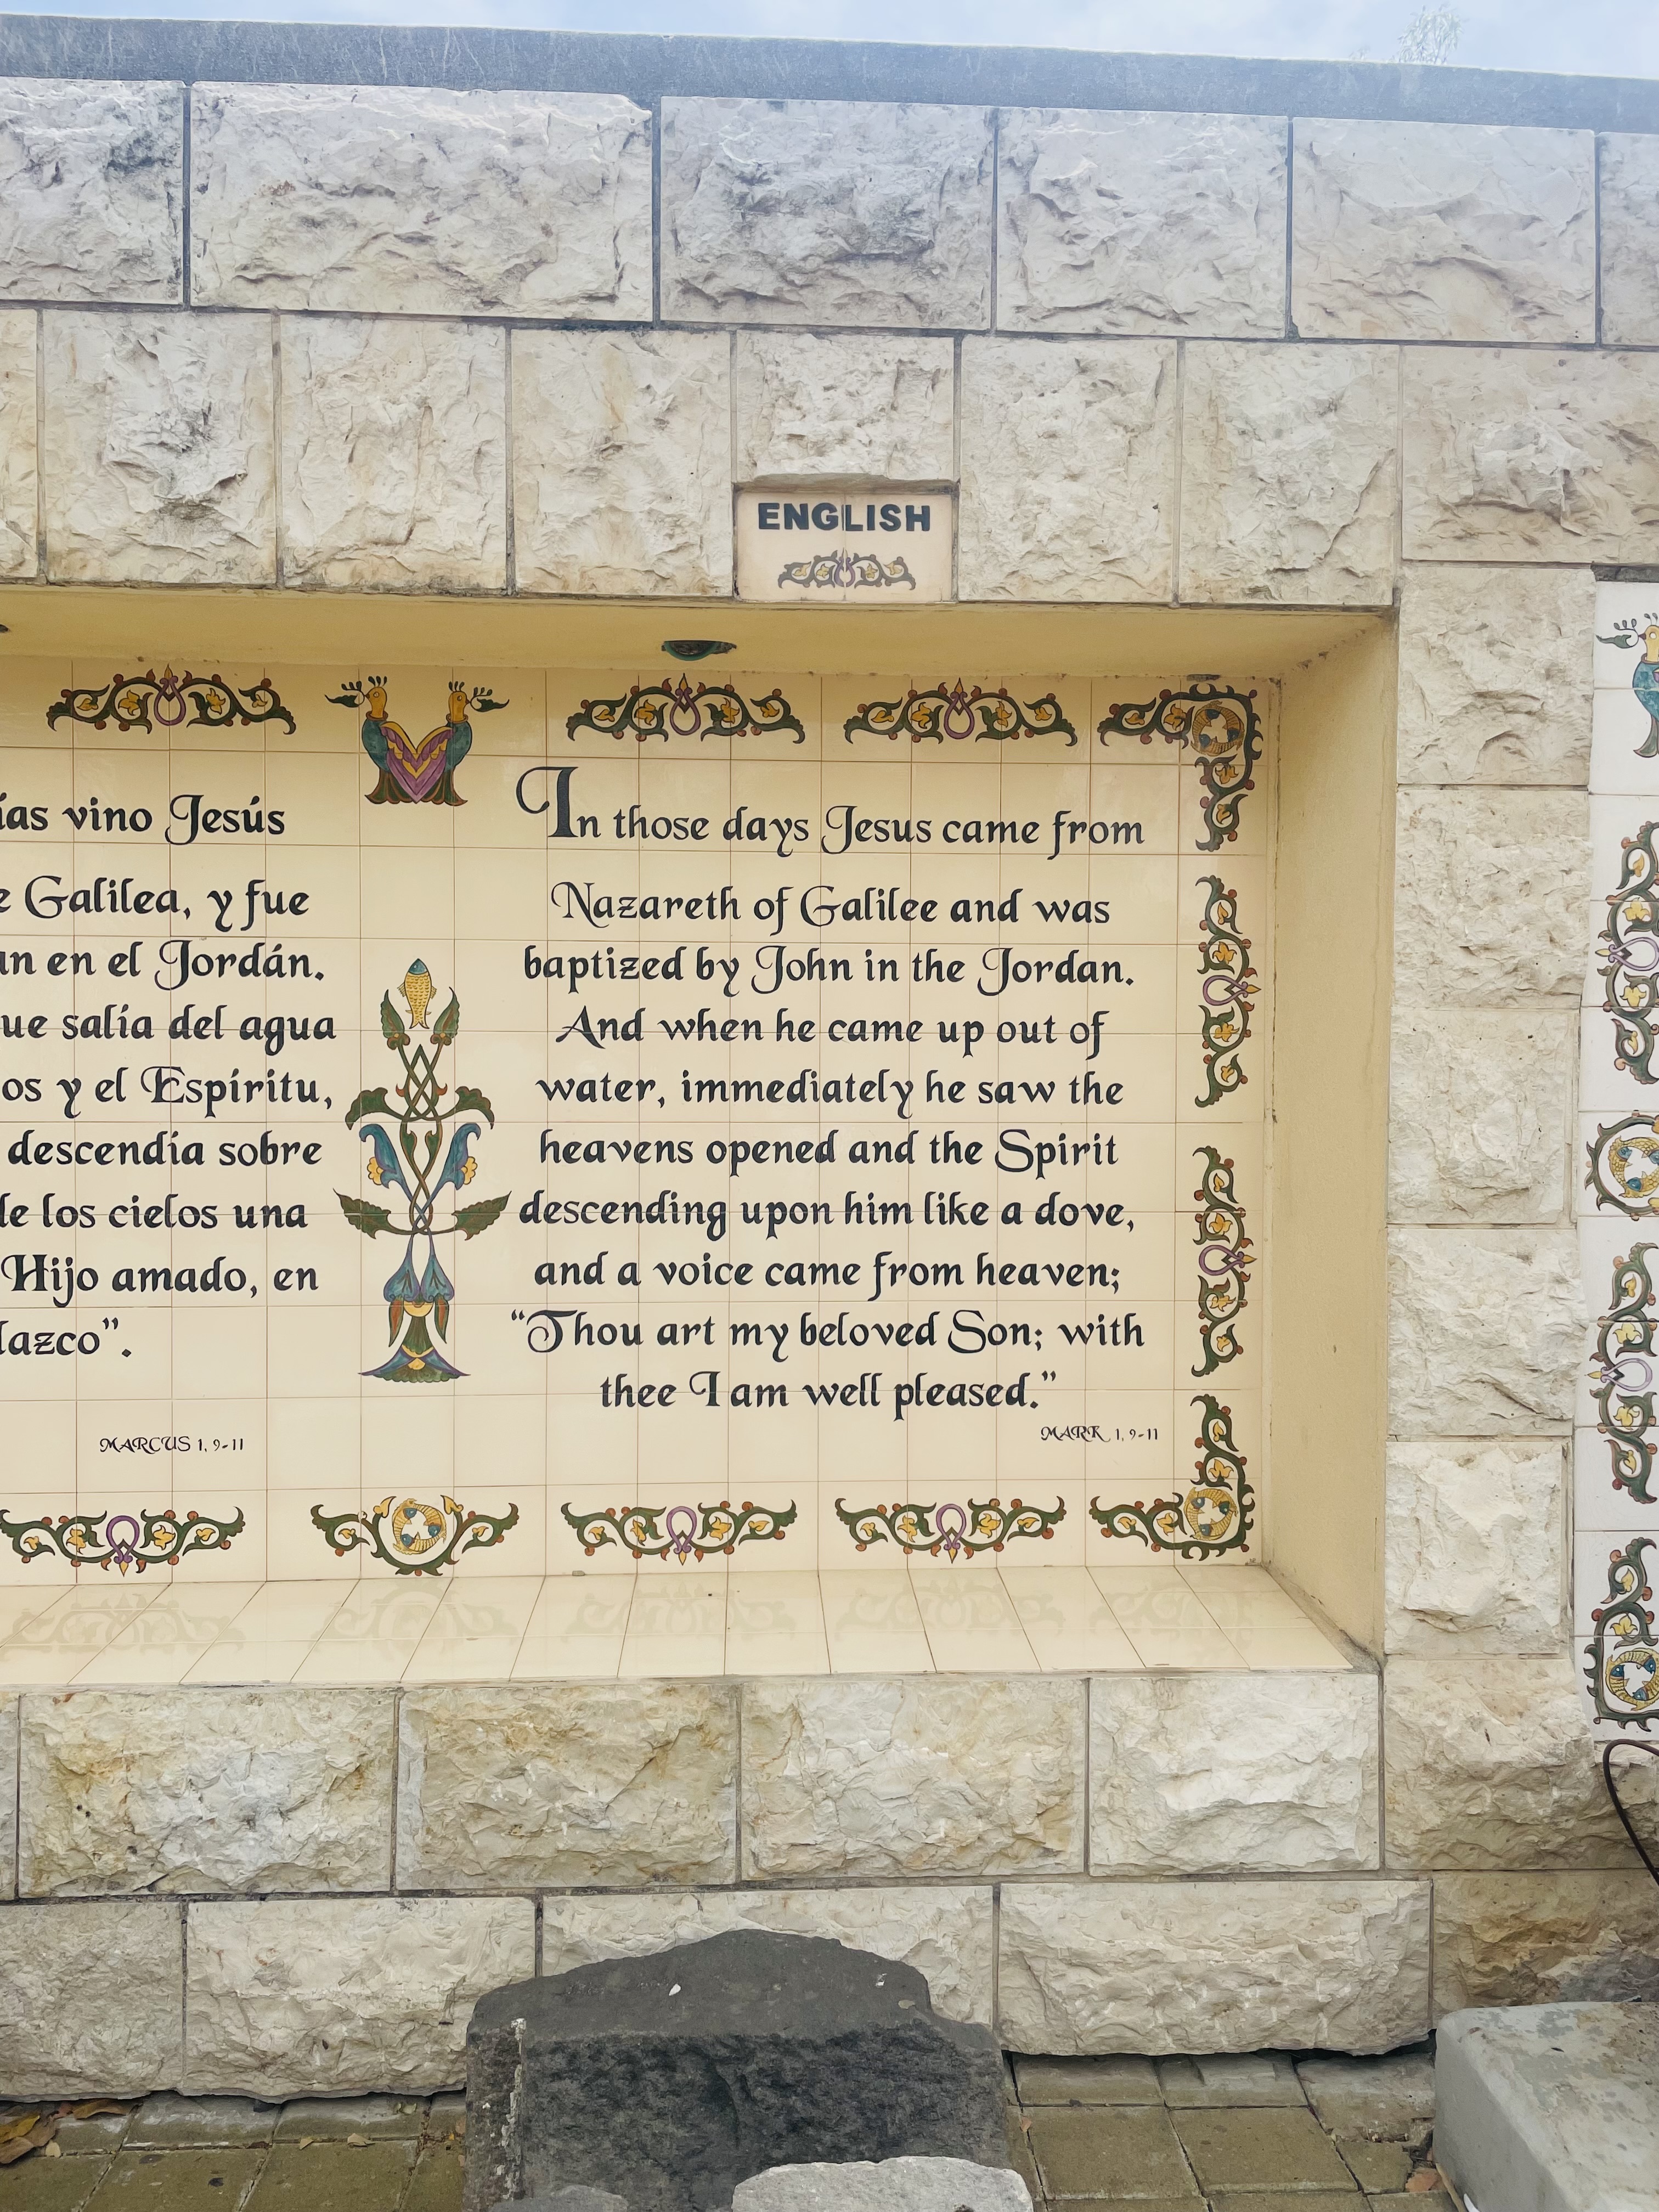 ENGLISH
vino Jesús
Galilea, y fue
en el Jordán.
salía del agua
y el Espíritu,
descendía sobre
los cielos una
Hijo amado, en
MARCUS 1, 9-11
In those days Jesus came from
Nazareth of Galilee and was
baptized by John in the Jordan.
And when he came up out of
water, immediately he saw the
heavens opened and the Spirit
descending upon him like a dove,
and a voice came from heaven;
“Thou art my beloved Son; with
thee I am well pleased.”
MARK 1, 9-11